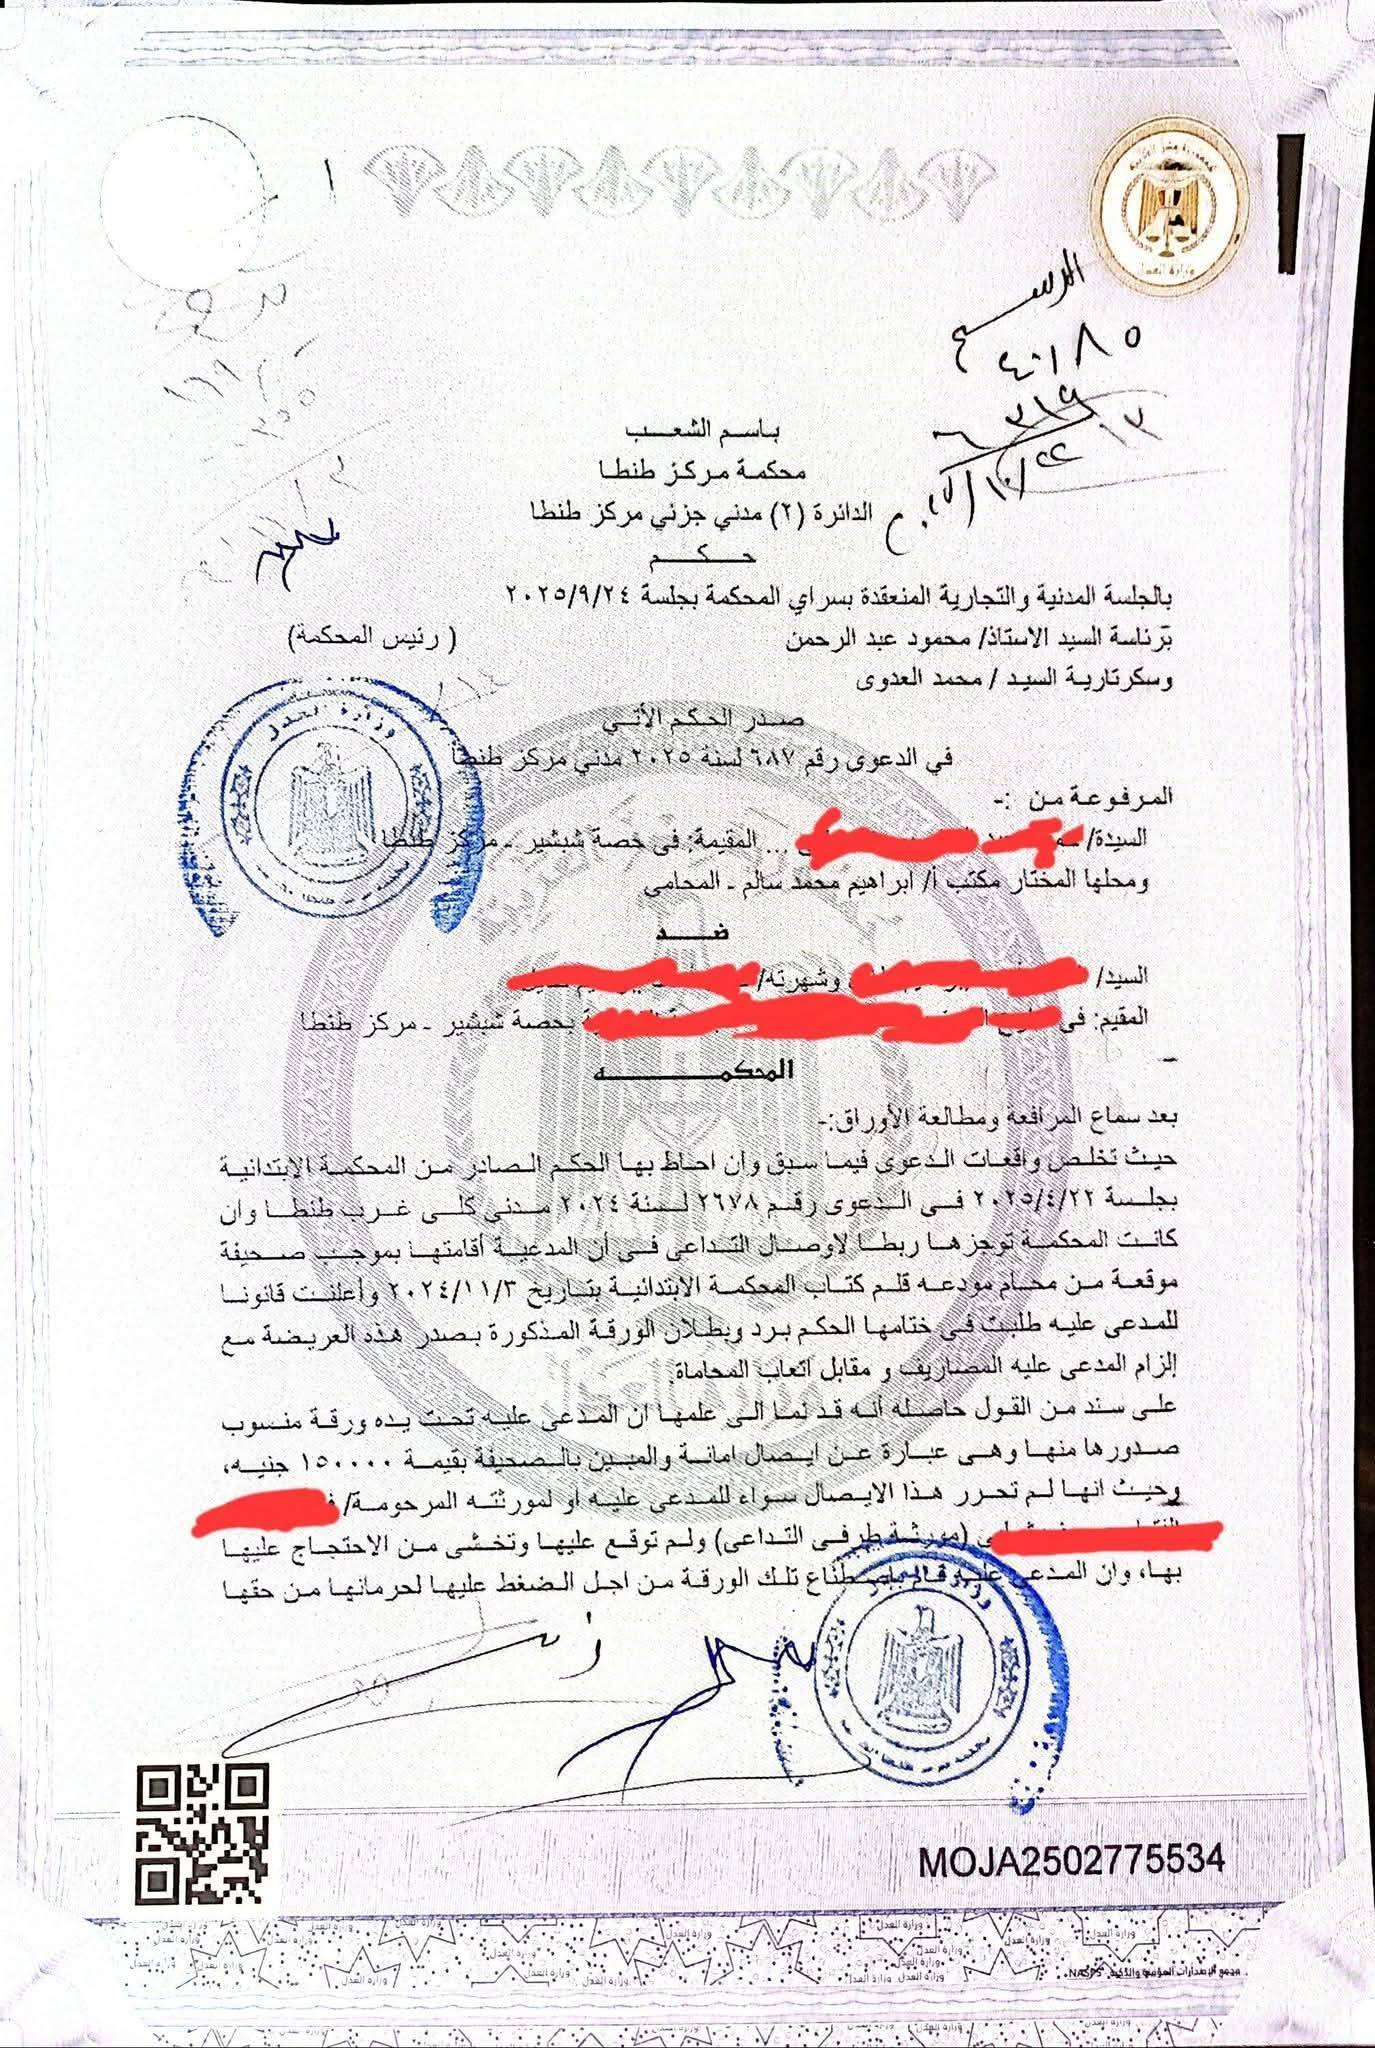 جمهورية مصر العربية
وزارة العدل
١
٤٠١٨٥
٢٠٢٥/١٠/٢٢
باسم الشعب
محكمة مركز طنطا
الدائرة (٢) مدني جزئي مركز طنطا
حكم
بالجلسة المدنية والتجارية المنعقدة بسراي المحكمة بجلسة ٢٠٢٥/٩/٢٤
برئاسة السيد الاستاذ/ محمود عبد الرحمن ( رئيس المحكمة)
وسكرتارية السيد / محمد العدوى
صدر الحكم الأتي
في الدعوى رقم ٦٨٧ لسنة ٢٠٢٥ مدني مركز طنطا
المرفوعة من :-
السيدة/ ... المقيمة: فى حصة شبشير - مركز طنطا
ومحلها المختار مكتب أ/ ابراهيم محمد سالم - المحامى
ضد
السيد/ وشهرته/
المقيم: فى بحصة شبشير - مركز طنطا
المحكمه
بعد سماع المرافعة ومطالعة الأوراق:-
حيث تخلص واقعات الدعوى فيما سبق وان احاط بها الحكم الصادر من المحكمة الإبتدائية
بجلسة ٢٠٢٥/٤/٢٢ فى الدعوى رقم ٢٦٧٨ لسنة ٢٠٢٤ مدنى كلى غرب طنطا وان
كانت المحكمة توجزها ربطا لاوصال التداعى فى أن المدعية أقامتها بموجب صحيفة
موقعة من محام مودعه قلم كتاب المحكمة الابتدائية بتاريخ ٢٠٢٤/١١/٣ وأعلنت قانونا
للمدعى عليه طلبت في ختامها الحكم برد وبطلان الورقة المذكورة بصدر هذه العريضة مع
إلزام المدعى عليه المصاريف و مقابل اتعاب المحاماة.
على سند من القول حاصله أنه قد نما الى علمها ان المدعى عليه تحت يده ورقة منسوب
صدورها منها وهى عبارة عن ايصال امانة والمبين بالصحيفة بقيمة ١٥٠٠٠٠ جنيه،
وحيث انها لم تحرر هذا الايصال سواء للمدعى عليه او لمورثته المرحومة/
(مورثة طرفى التداعى) ولم توقع عليها وتخشى من الاحتجاج عليها
بها، وان المدعى عليه قام باصطناع تلك الورقة من اجل الضغط عليها لحرمانها من حقها
وزارة العدل
وزارة العدل
MOJA2502775534
مجمع الإصدارات المؤمنة والذكية NASPS
وزارة العدل